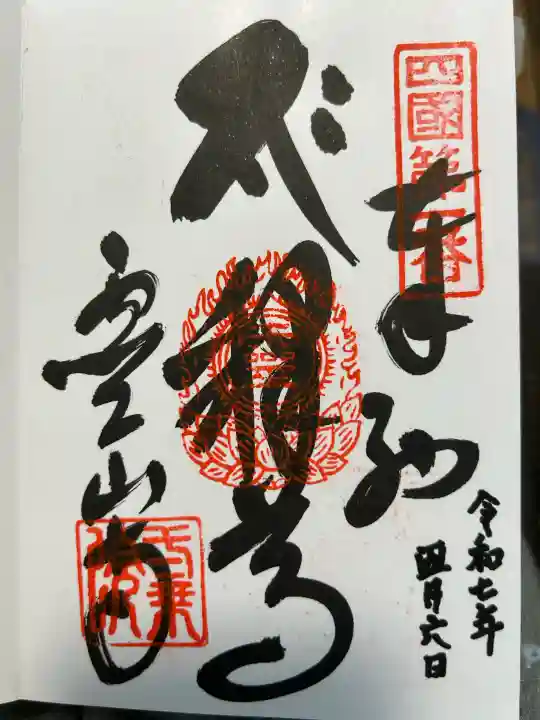 四國第一番
奉納
令和七年
四月六日
釋迦尊
霊山寺